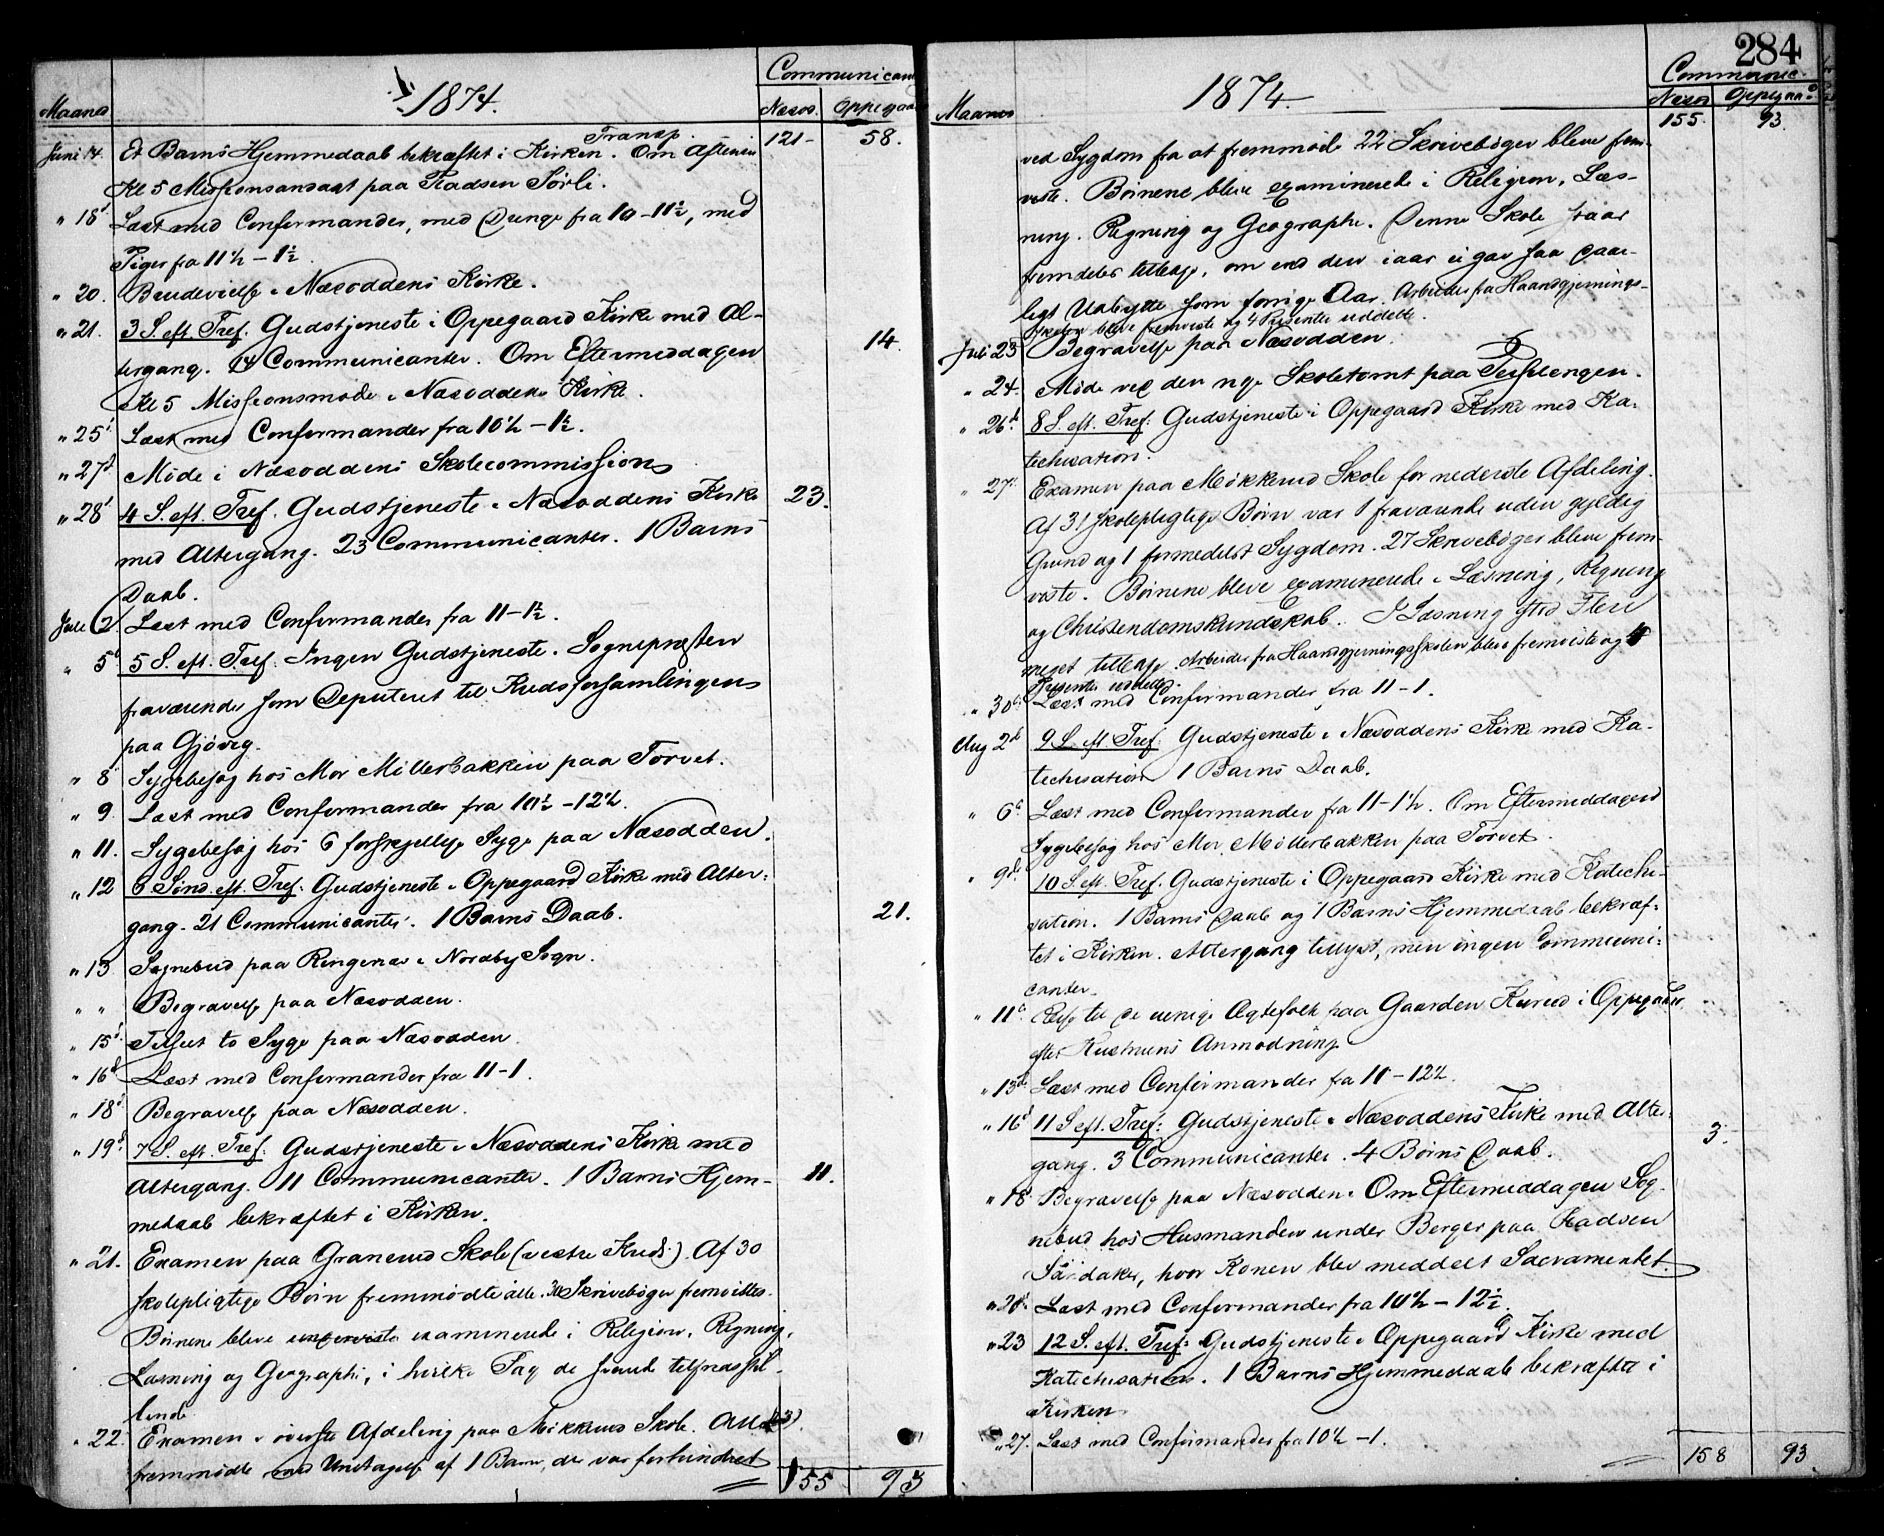 1874.
Communican
Maaned
Næsod.
Oppegaa
Transp.
121
58.
Juni 14.
Et Barns Hjemmedaab bekræftet i Kirken. Om Aftenen
Kl 5 Missionsandagt paa Fladsen Sørli.
" 18
Læst med Confirmander, med Drenge fra 10-11½, med
Piger fra 11½ - 1½.
" 20.
Brudevielse i Næsoddens Kirke.
" 21.
3 S. eft. Tref. Gudstjeneste i Oppegaard Kirke med Al-
tergang. 14 Communicanter. Om Eftermiddagen
14.
Kl 5 Missionsmøde i Næsoddens Kirke.
" 25
Læst med Confirmander fra 10½ - 1½.
" 27d
Møde i Næsoddens Skolecommission
" 28
4 S. eft. Tref. Gudstjeneste i Næsoddens Kirke
23.
med Altergang. 23 Communicanter. 1 Barns
Daab.
Juli 2
Læst med Confirmander fra 11-1½.
" 5d
5 S. eft. Tref. Ingen Gudstjeneste. Sognepræsten
fraværende som Deputeret til Kredsforsamlingen
paa Gjøvig.
" 8
Sygebesøg hos Mor Møllerbakken paa Torvet.
" 9.
Læst med Confirmander fra 10½ - 12½.
" 11.
Sygebesøg hos 6 forskjellige Syge paa Næsodden.
" 12
6 Sønd. eft. Tref. Gudstjeneste i Oppegaard Kirke med Alter-
gang. 21 Communicanter. 1 Barns Daab.
21.
" 13
Sognebud paa Ringenæs i Nordby Sogn.
" "
Begravelse paa Næsodden.
" 15d
Tilseet to Syge paa Næsodden.
" 16d
Læst med Confirmander fra 11-1.
" 18d
Begravelse paa Næsodden.
" 19d
7 S. eft. Tref. Gudstjeneste i Næsoddens Kirke med
Altergang. 11 Communicanter. 1 Barns Hjem-
11.
medaab bekræftet i Kirken.
" 21.
Examen paa Granerud Skole (vestre Kreds). Af 30
skolepligtige Børn fremmødte alle. 30 Skrivebøger fremvistes.
Børnene bleve examinerede i Religion, Regning,
Læsning og Geographi, i hvilke Fag de stande tilfredsstil-
lende
" 22.
Examen i øverste Afdeling paa Møkkerud Skole. Alle (23)
fremmødte med Undtagelse af 1 Barn, der var forhindret
155
93
284
1874.
Communic.
Maaned
Næsod
Oppegaa
155.
93.
ved Sygdom fra at fremmøde 22 Skrivebøger bleve frem-
viste. Børnene bleve examinerede i Religion, Læs-
ning, Regning og Geographi. Denne Skole staar
fremdeles tilbage, om end den iaar ei gav saa daar-
ligt Udbytte som forrige Aar. Arbeider fra Haandgjernings-
skolen bleve fremviste og 4 Præsenter uddelte.
Juli 23
Begravelse paa Næsodden.
" 24.
Møde ved den nye Skoletomt paa
" 26d
8 S. eft. Tref. Gudstjeneste i Oppegaard Kirke med Ka-
techisation.
" 27.
Examen paa Møkkerud Skole for nederste Afdeling.
Af 31 skolepligtige Børn var 1 fraværende uden gyldig
Grund og 1 formedelst Sygdom. 27 Skrivebøger bleve frem-
viste. Børnene bleve examinerede i Læsning, Regning
og Christendomskundskab. I Læsning stod Flere
meget tilbage. Arbeider fra Haandgjerningsskolen bleve fremviste og 4
Præsenter uddelte.
" 30d
Læst med Confirmander fra 11-1.
Aug 2d
9 S. eft. Tref. Gudstjeneste i Næsoddens Kirke med Ka-
techisation 1 Barns Daab.
" 6d
Læst med Confirmander fra 11-1½. Om Eftermiddagen
Sygebesøg hos Mor Møllerbakken paa Torvet.
" 9d
10 S. eft. Tref. Gudstjeneste i Oppegaard Kirke med Kateche-
sation. 1 Barns Daab og 1 Barns Hjemmedaab bekræf-
tet i Kirken. Altergang tillyst, men ingen Communi-
canter.
" 11d
Reise til de uenige Ægtefolk paa Gaarden Kurud i Oppegaard
efter Hustruens Anmodning
" 13d
Læst med Confirmander fra 11-12½.
" 16d
11 S eft. Tref: Gudstjeneste i Næsoddens Kirke med Alter-
gang. 3 Communicanter. 4 Børns Daab.
3.
" 18
Begravelse paa Næsodden. Om Eftermiddagen Sog-
nebud hos Husmanden under Berger paa Fladsen
Sørdaker, hvor Konen blev meddelt Sacramentet.
" 20d
Læst med Confirmander fra 10½ - 12½.
" 23
12 S. eft. Tref: Gudstjeneste i Oppegaard Kirke med
Katechisation. 1 Barns Hjemmedaab bekræftet i
Kirken
" 27.
Læst med Confirmander fra 10½ - 1.
158
93